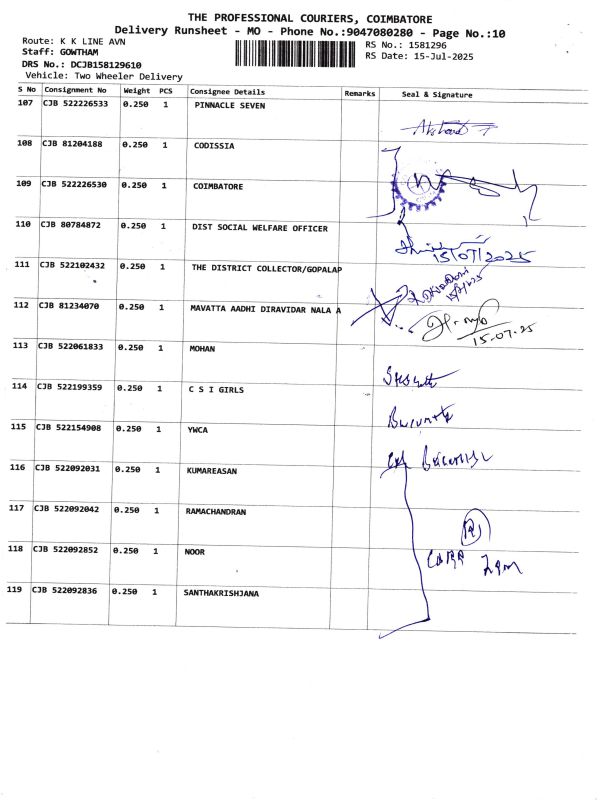 THE PROFESSIONAL COURIERS, COIMBATORE
Delivery Runsheet - MO - Phone No.:9047080280 - Page No.:10
Route: K K LINE AVN
Staff: GOWTHAM
DRS No.: DCJB158129610
Vehicle: Two Wheeler Delivery
RS No.: 1581296
RS Date: 15-Jul-2025
S No Consignment No Weight PCS Consignee Details Remarks Seal & Signature
107 CJB 522226533 0.250 1 PINNACLE SEVEN
108 CJB 81204188 0.250 1 CODISSIA
109 CJB 522226530 0.250 1 COIMBATORE
110 CJB 80784872 0.250 1 DIST SOCIAL WELFARE OFFICER
15/07/2025
111 CJB 522102432 0.250 1 THE DISTRICT COLLECTOR/GOPALAP
112 CJB 81234070 0.250 1 MAVATTA AADHI DIRAVIDAR NALA A
15-07-25
113 CJB 522061833 0.250 1 MOHAN
114 CJB 522199359 0.250 1 C S I GIRLS
115 CJB 522154908 0.250 1 YWCA
116 CJB 522092031 0.250 1 KUMAREASAN
117 CJB 522092042 0.250 1 RAMACHANDRAN
118 CJB 522092852 0.250 1 NOOR
119 CJB 522092836 0.250 1 SANTHAKRISHJANA